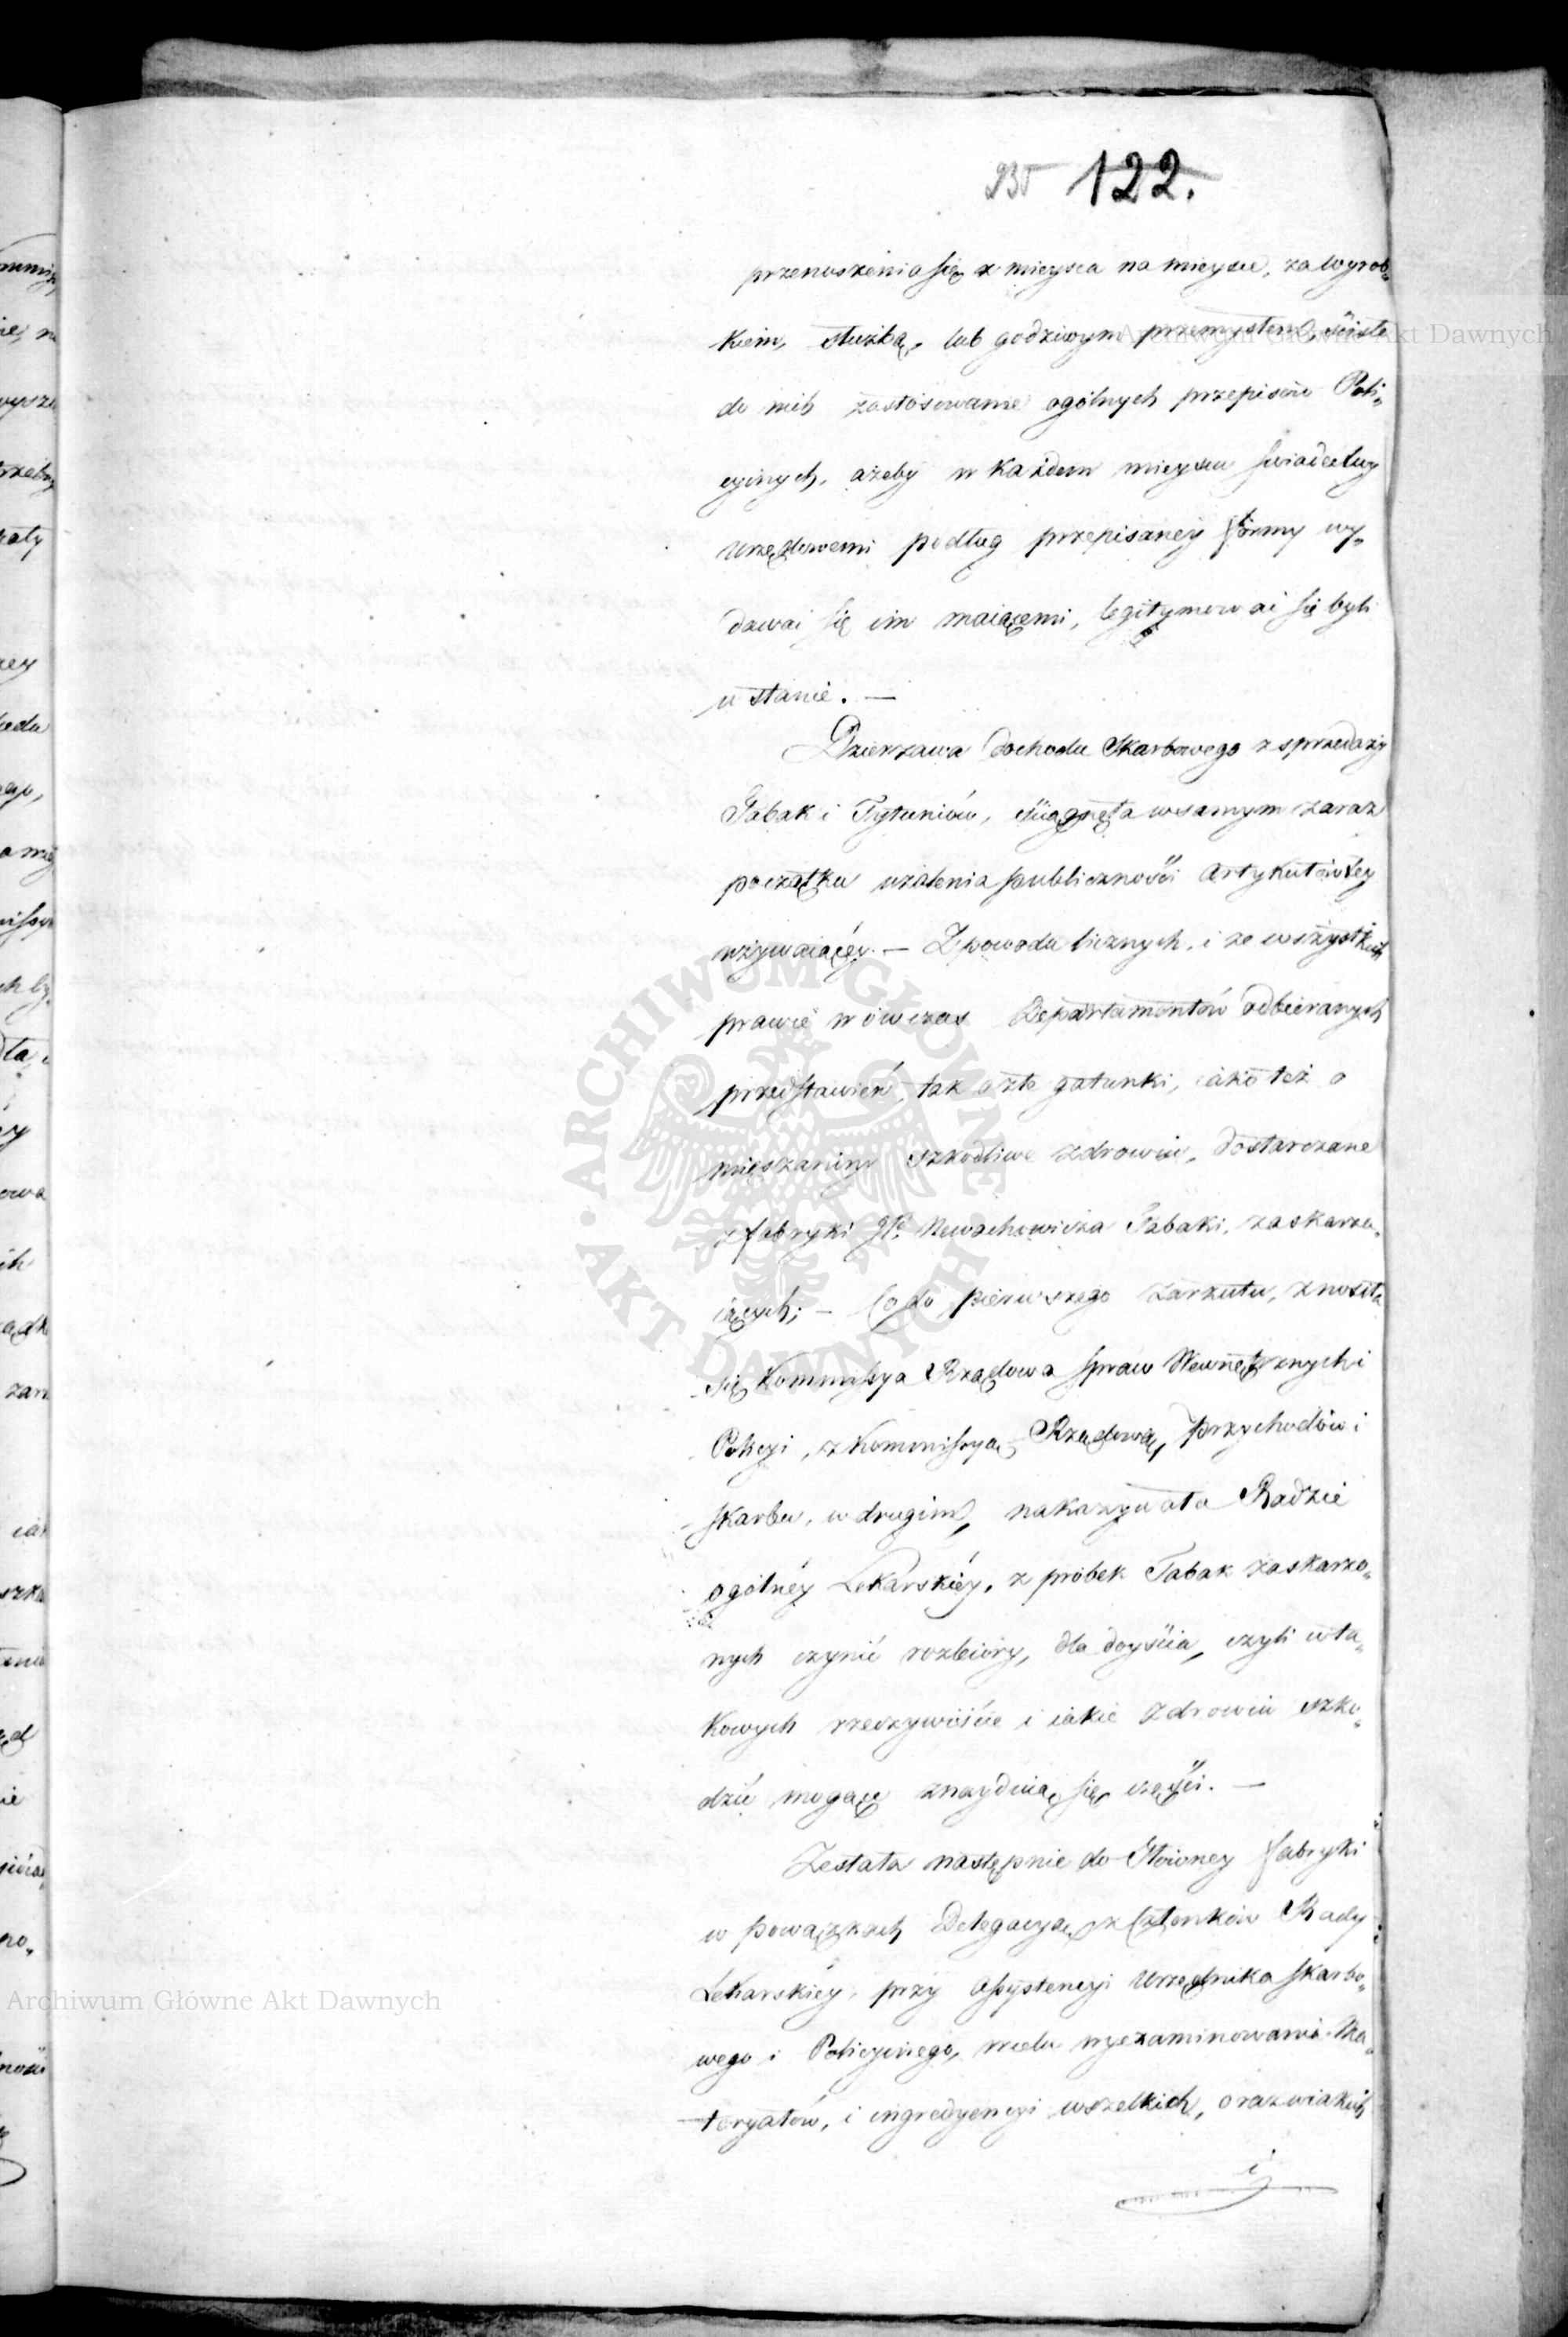 235 122.
przenoszenia się z mieysca na mieysce, za wyrob„
kiem, służbą, lub godziwym przemysłem, ściśle
do nich zastosowanie ogólnych przepisów Poli„
cyinych, ażeby w każdem mieyscu świadectwy
urzędowemi podług przepisaney formy wy„
dawać się im maiącemi, legitymować się byli
w stanie. —
Dzierżawa dochodu Skarbowego z sprzedaży
Tabak i Tytuniów, ściągnęła w samym zaraz
początku użalenia publiczności artykułów tey
używaiącéy. — Z powodu licznych, i ze wszystkich
prawie wówczas Departamentów odbieranych
przedstawień, tak o złe gatunki, iako też o
mięszaniny szkodliwe zdrowiu, dostarczane
z fabryki JP. Newachowicza Tabaki, zaskarża„
iących; — Co do pierwszego zarzutu, znosiła
się Kommissya Rządowa Spraw Wewnętrznych i
Policyi, z Kommissyą Rządową przychodów i
Skarbu, w drugim, nakazywała Radzie
ogólnéy Lekarskiéy, z próbek Tabak zaskarżo„
nych czynić rozbiory, dla doyścia, czyli w ta„
kowych rzeczywiście i iakie zdrowiu szko„
dzić mogące znayduią się części. —
Zesłała następnie do Głowney fabryki
w Powązkach Delegacyą z Członków Rady
Lekarskiéy, przy Assystencyi Urzędnika Skarbo„
wego i Policyinego, w celu wyexaminowania Ma„
teryałów, i ingredyencyi wszelkich, oraz w iakich
i
Archiwum Główne Akt Dawnych
Archiwum Główne Akt Dawnych
ARCHIWUM GŁÓWNE • AKT DAWNYCH •